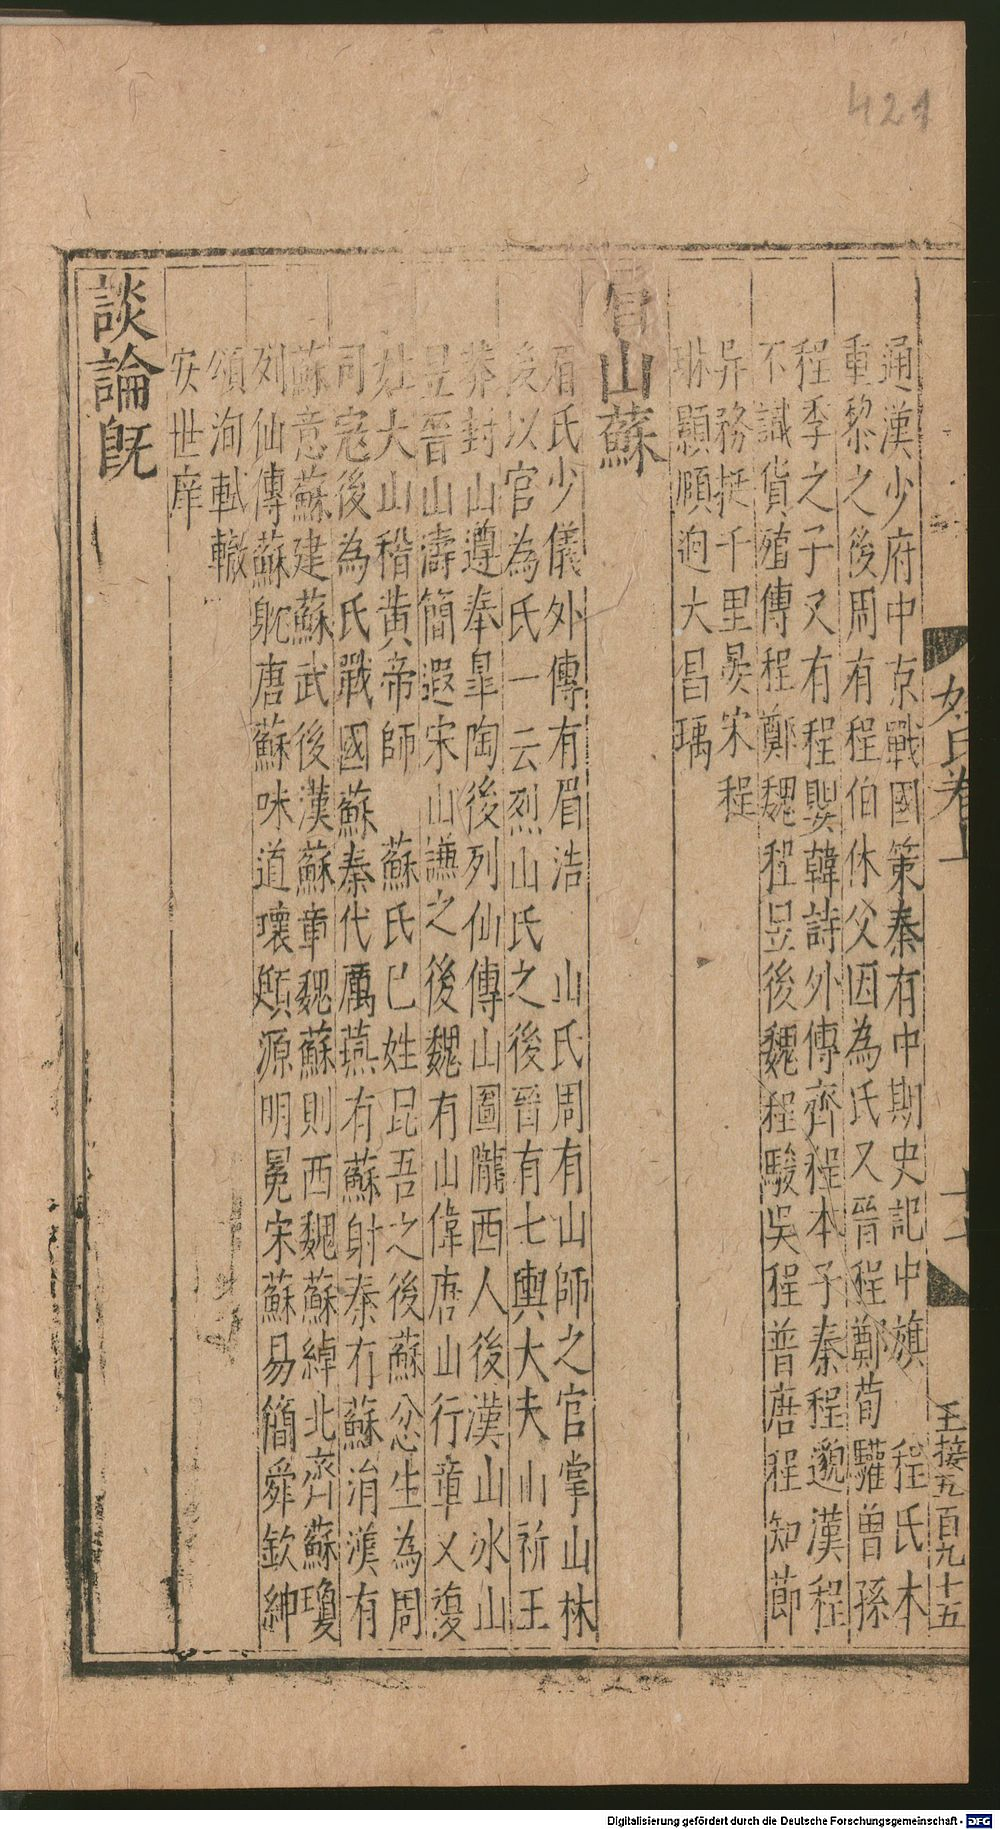 421
姓氏卷上
王接五百九十五
通漢少府中京戰國策秦有中期史記中旗　程氏本
重黎之後周有程伯休父因為氏又晉程鄭荀驩曾孫
程季之子又有程嬰韓詩外傳齊程本子秦程邈漢程
不識貨殖傳程鄭魏程昱後魏程駿吳程普唐程知節
异務挺千里晏宋程
琳顥頤迥大昌瑀
眉山蘇
眉氏少儀外傳有眉浩　山氏周有山師之官掌山林
後以官為氏一云烈山氏之後晉有七輿大夫山祈王
莽封山遵奉皋陶後列仙傳山圖隴西人後漢山冰山
昱晉山濤簡遐宋山謙之後魏有山偉唐山行章又復
姓大山稽黃帝師　蘇氏巳姓昆吾之後蘇忿生為周
司寇後為氏戰國蘇秦代厲燕有蘇射秦有蘇涓漢有
蘇意蘇建蘇武後漢蘇章魏蘇則西魏蘇綽北齊蘇瓊
列仙傳蘇躭唐蘇味道瓌頲源明冕宋蘇易簡舜欽紳
頌洵軾轍
安世庠
談論旣
Digitalisierung gefördert durch die Deutsche Forschungsgemeinschaft - DFG